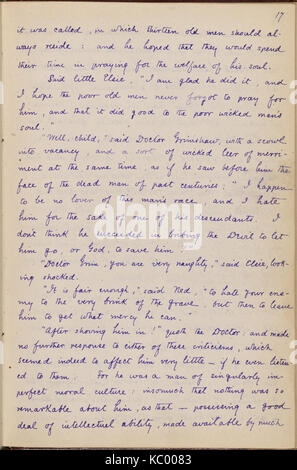 17
it was called, in which thirteen old men should al-
ways reside; and he hoped that they would spend
their time in praying for the welfare of his soul.
Said little Elsie, "I am glad he did it, and
I hope the poor old men never forgot to pray for
him, and that it did good to the poor wicked man's
soul."
"Well, child," said Doctor Grimshaw, with a scowl
into vacancy, and a sort of wicked leer of merri-
ment at the same time, as if he saw before him the
face of the dead man of past centuries; "I happen
to be no lover of this man's race, and I hate
him for the sake of one of his descendants. I
don't think he succeeded in bribing the Devil to let
him go, or God, to save him."
"Doctor Grim, you are very naughty," said Elsie, look-
ing shocked.
"It is fair enough," said Ned, "to hate your ene-
my to the very brink of the grave, but then to leave
him to get what mercy he can."
"After shoving him in!" quoth the Doctor; and made
no further response to either of these criticisms, which
seemed indeed to affect him very little — if he even listen-
ed to them. For he was a man of singularly im-
perfect moral culture; insomuch that nothing was so
remarkable about him, as that — possessing a good
deal of intellectual ability, made available by much
alamy
Image ID: KC0083
www.alamy.com